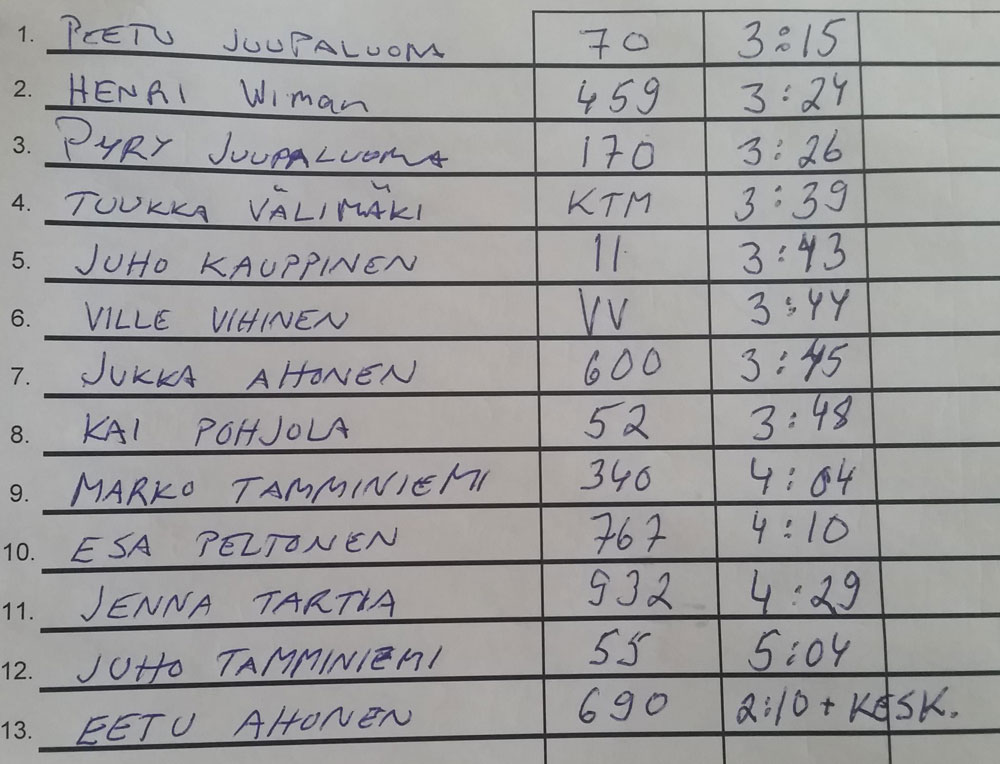 1. PEETU JUUPALUOMA 70 3:15
2. HENRI Wiman 459 3:24
3. PYRY JUUPALUOMA 170 3:26
4. TUUKKA VÄLIMÄKI KTM 3:39
5. JUHO KAUPPINEN 11 3:43
6. VILLE VIHINEN VV 3:44
7. JUKKA AHONEN 600 3:45
8. KAI POHJOLA 52 3:48
9. MARKO TAMMINIEMI 340 4:04
10. ESA PELTONEN 767 4:10
11. JENNA TARTIA 932 4:29
12. JUHO TAMMINIEMI 55 5:04
13. EETU AHONEN 690 2:10 + KESK.